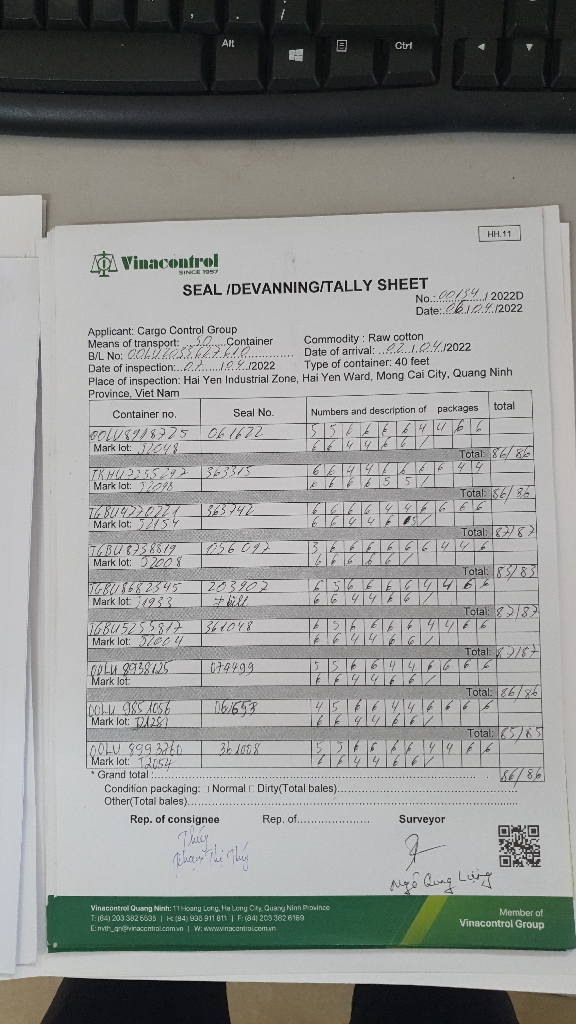 Alt
Ctrl
HH.11
Vinacontrol
SINCE 1957
SEAL /DEVANNING/TALLY SHEET
No.: 00134 / 2022D
Date: 06/04/2022
Applicant: Cargo Control Group
Means of transport: Container
Commodity : Raw cotton
B/L No:
Date of arrival: 02/04/2022
Date of inspection: 07/04/2022
Type of container: 40 feet
Place of inspection: Hai Yen Industrial Zone, Hai Yen Ward, Mong Cai City, Quang Ninh
Province, Viet Nam
Container no. Seal No. Numbers and description of packages total
OOLU8918725 061622 5 5 6 6 6 6 4 4 6 6
Mark lot: J2048 6 6 4 4 6 6 /
Total: 86/86
363315 6 6 4 4 6 6 6 6 4 4
Mark lot: 6 6 6 6 5 5 /
Total: 86/86
TGBU4270221 363742 6 6 6 6 4 4 6 6 6 6
Mark lot: J2154 6 6 4 4 6 /
Total: 87/87
TGBU8738819 056092 3 6 6 6 6 6 6 4 4 6
Mark lot: J2008 6 6 6 6 6 /
Total: 83/83
TGBU8682345 203902 6 5 6 6 6 6 4 4 6 6
Mark lot: J1933 # bill 6 6 4 4 6 6 /
Total: 87/87
TGBU5235817 361048 6 5 6 6 6 6 4 4 6 6
Mark lot: J2004 6 6 4 4 6 6 /
Total: 87/87
OOLU 8938125 079499 5 5 6 6 4 4 6 6 6 6
Mark lot: 6 6 4 4 6 6 /
Total: 86/86
OOLU 9851056 061653 4 5 6 6 4 4 6 6 6 6
Mark lot: 6 6 4 4 6 6 /
Total: 85/85
OOLU 8993760 361008 5 5 6 6 6 6 4 4 6 6
Mark lot: J2054 6 6 4 4 6 6 /
* Grand total : 86/86
Condition packaging: □ Normal □ Dirty(Total bales)
Other(Total bales)
Rep. of consignee Rep. of Surveyor
Thúy
Phạm Thị Thúy
Ngô Quang Lượng
Vinacontrol Quang Ninh: 11 Hoang Long, Ha Long City, Quang Ninh Province
T: (84) 203 382 5535 | H: (84) 936 911 811 | F: (84) 203 382 6169
E: nvth_qn@vinacontrol.com.vn | W: www.vinacontrol.com.vn
Member of
Vinacontrol Group